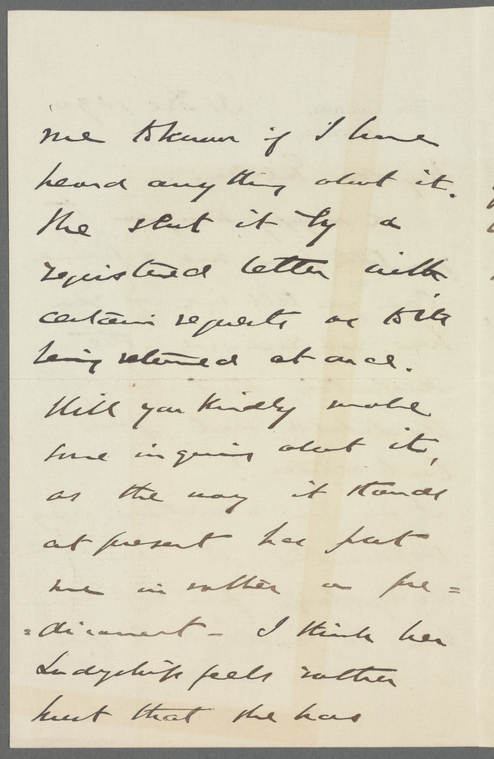 me to know if I have
heard anything about it.
She sent it by a
registered letter with
certain requests as to its
being returned at once.
Will you kindly make
some inquiries about it,
as the way it stands
at present has put
me in rather a pre=
=dicament - I think her
Ladyship feels rather
hurt that she has